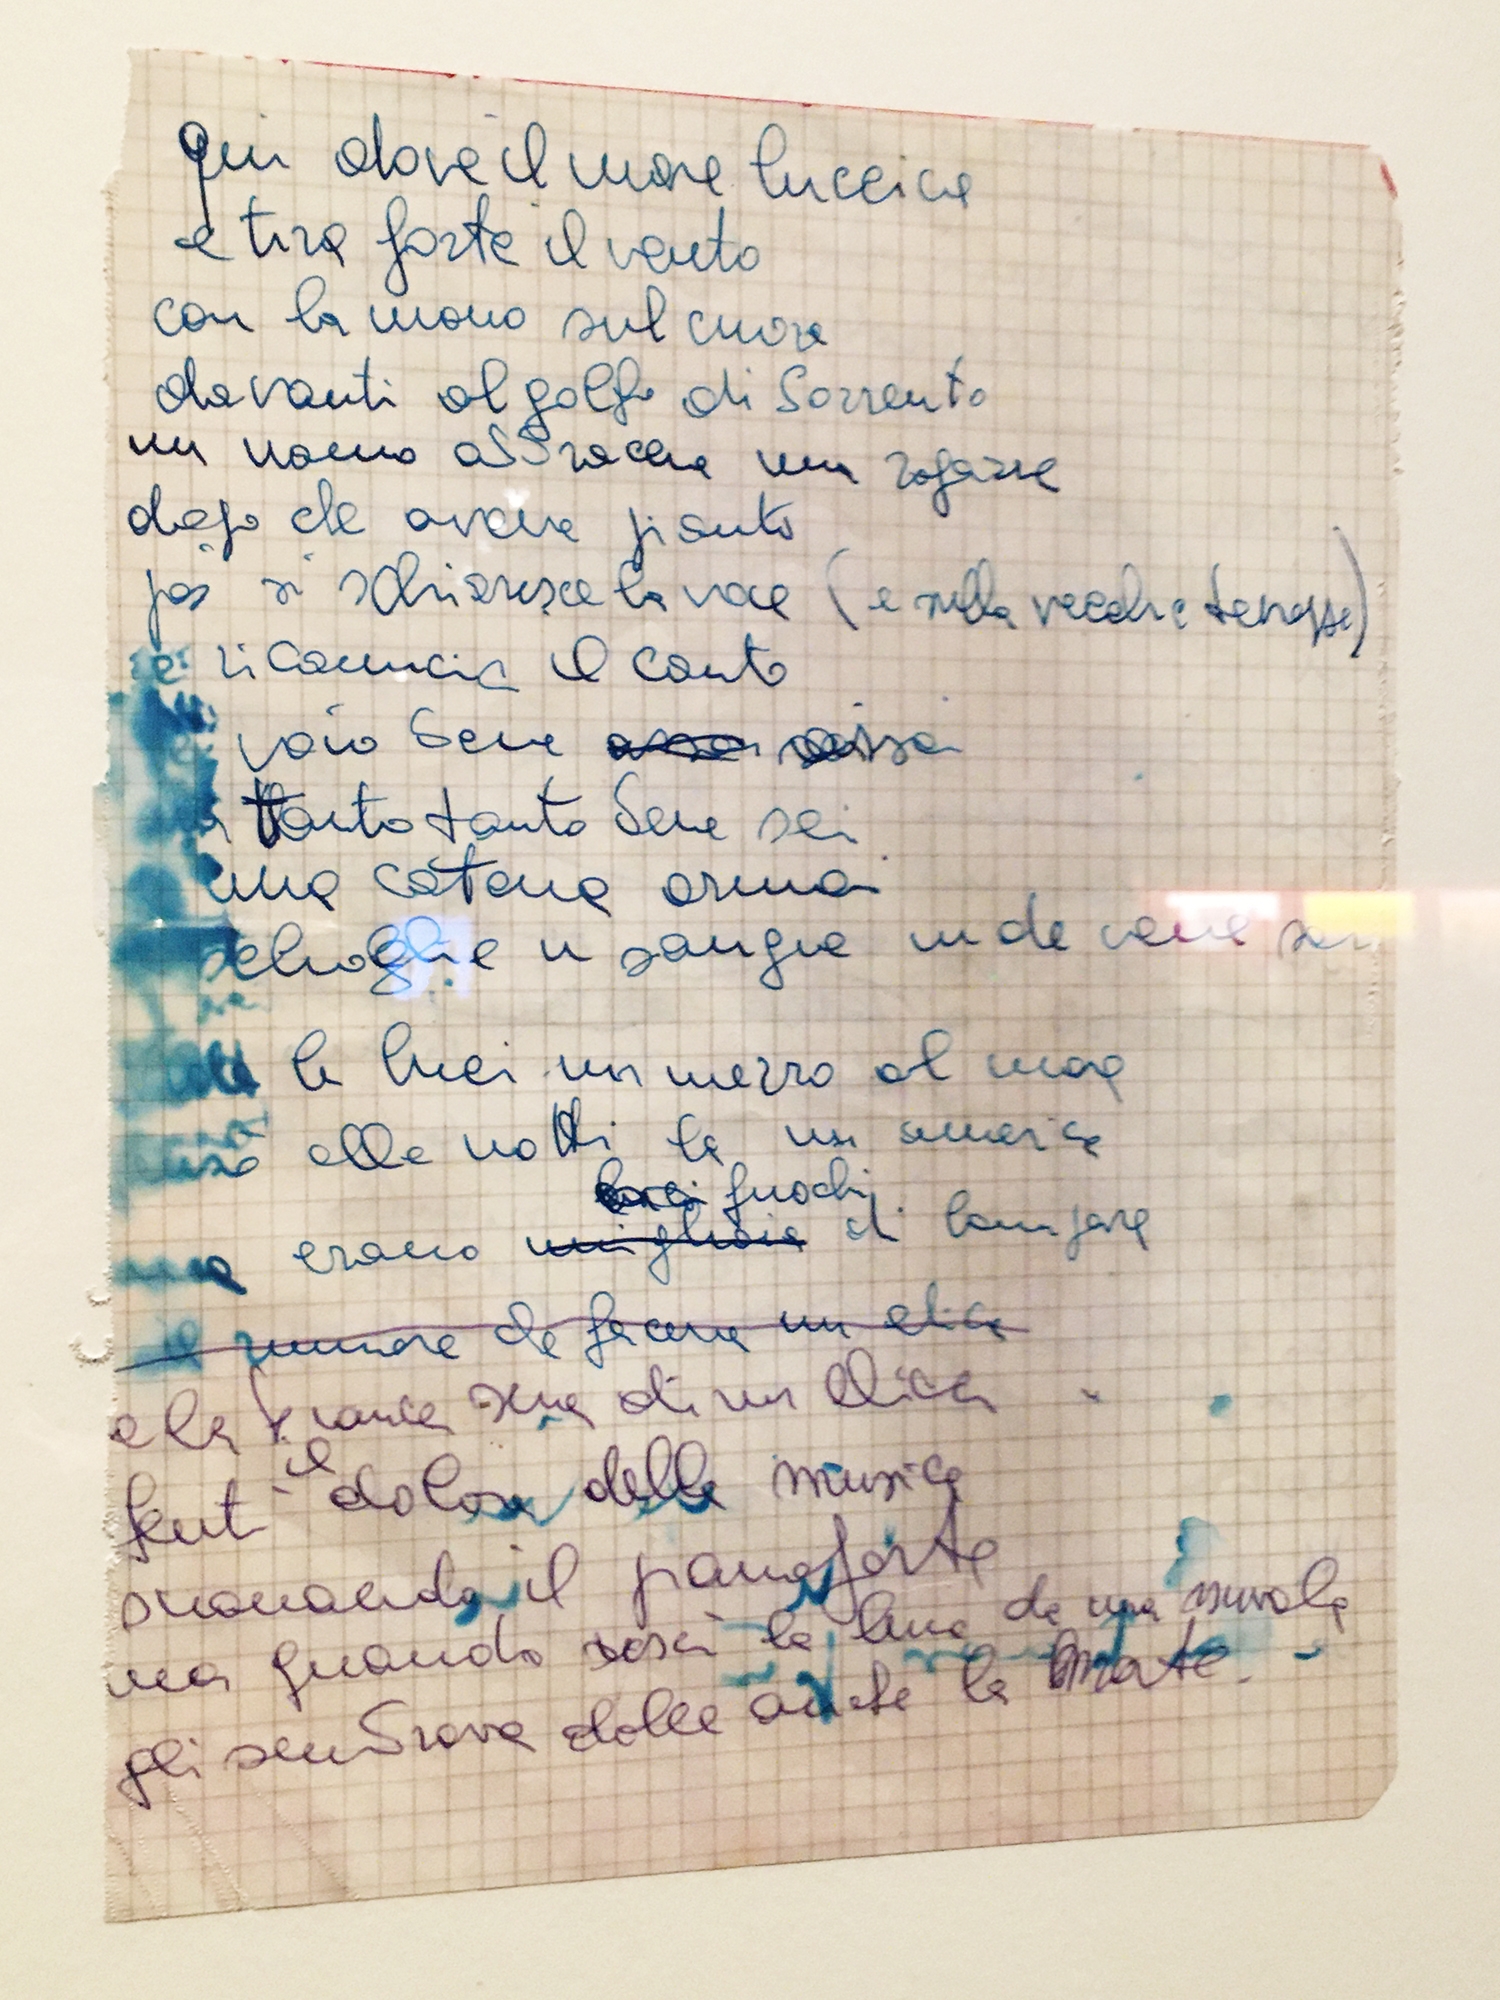 Qui dove il mare luccica
e tira forte il vento
con la mano sul cuore
davanti al golfo di Sorrento
un uomo abbraccia una ragazza
dopo che aveva pianto
poi si schiarisce la voce (e sulla vecchia terrazza)
e ricomincia il canto
voio bene assai assai
tanto tanto bene sai
una catena ormai
schioglie u sangue inde vene sai
le luci in mezzo al mare
alle notti la in america
ma erano migliaia luci fuochi di lampare
il rumore che faceva un elica
e la bianca scia di un elica
sentì il dolore della musica
suonando il pianoforte
ma quando uscì la luna da una nuvola
gli sembrava dolce anche la morte.